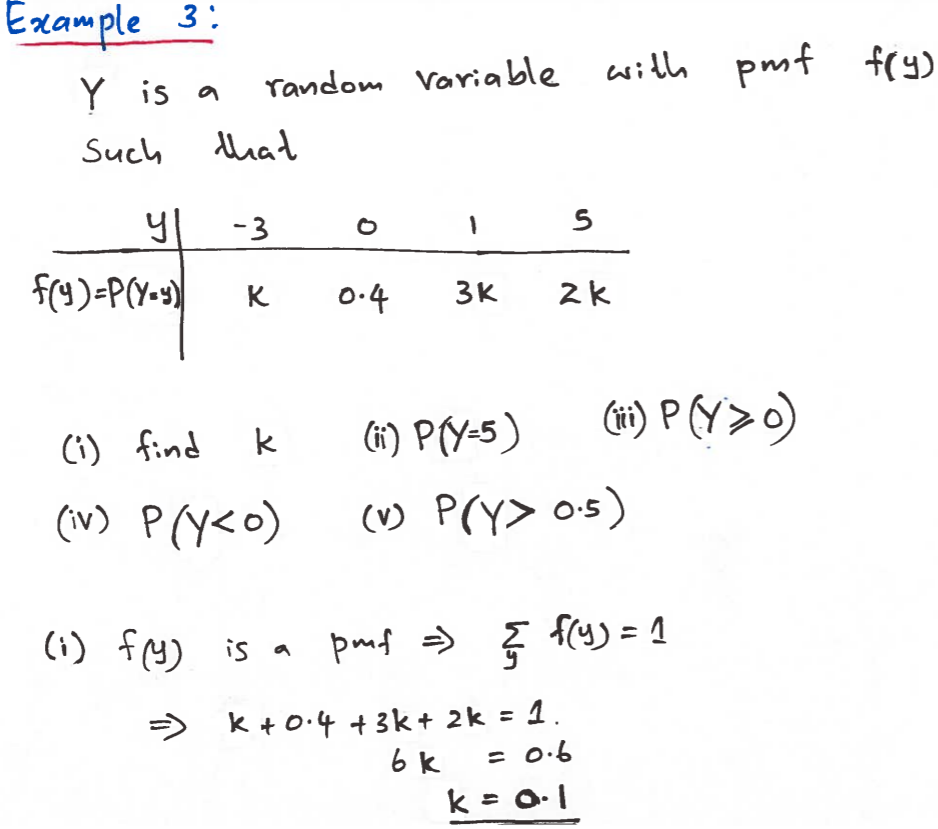 Example 3:
Y is a random variable with pmf f(y)
Such that
y | -3 0 1 5
f(y)=P(Y=y) | K 0.4 3K 2k
(i) find k (ii) P(Y=5) (iii) P(Y⩾0)
(iv) P(Y<0) (v) P(Y> 0.5)
(i) f(y) is a pmf ⇒ Σ_y f(y) = 1
⇒ k + 0.4 + 3k + 2k = 1.
6k = 0.6
k = 0.1